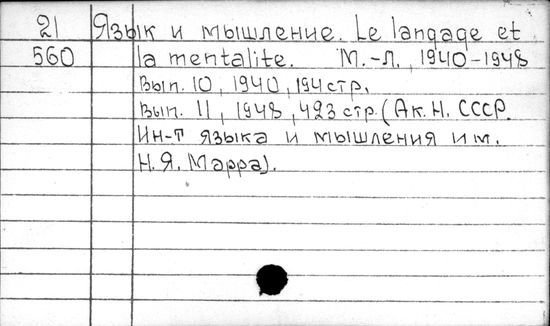 21 Язык и мышление. Le langage et
560 la mentalite. М.-Л., 1940-1948
Вып. 10, 1940, 194 стр.
Вып. 11, 1948, 423 стр. (Ак. Н. СССР.
Ин-т языка и мышления им.
Н. Я. Марра).